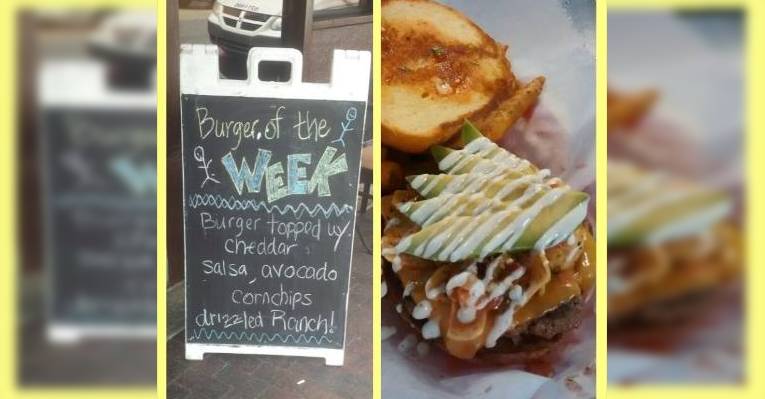 Burger of the
WEEK
Burger topped w/
cheddar
salsa, avocado
cornchips
drizzled Ranch!